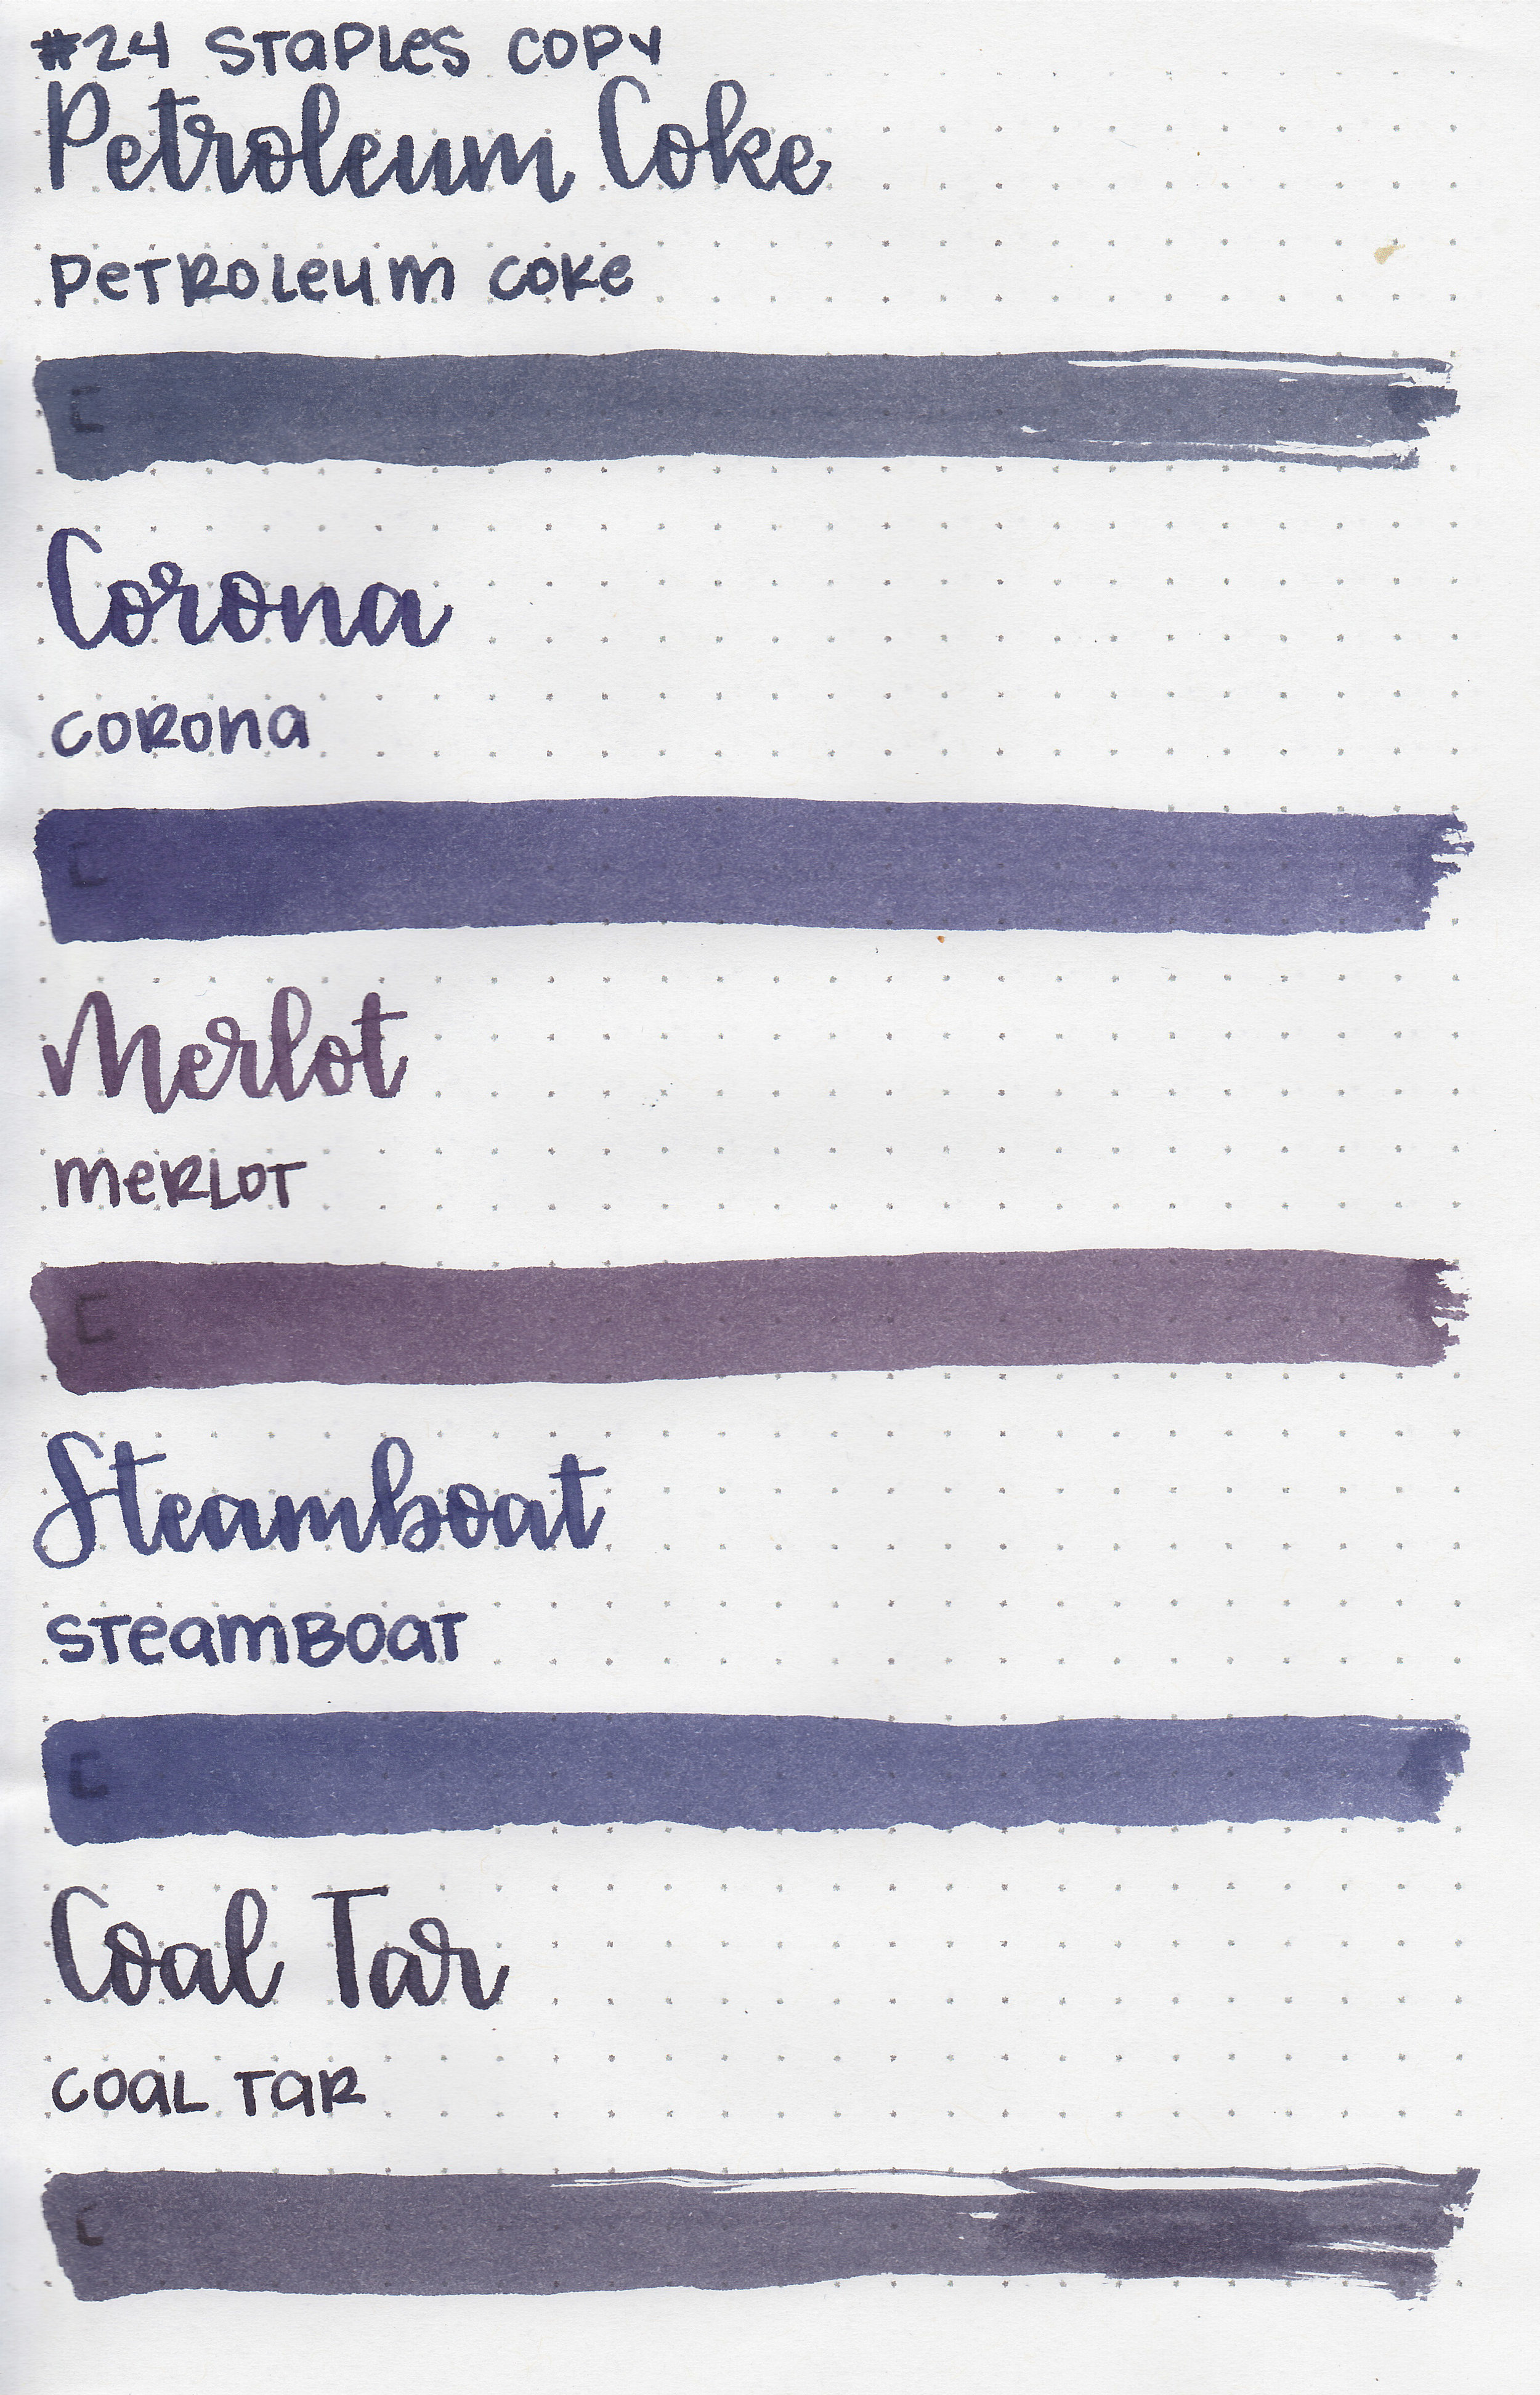 #24 STAPLES COPY
Petroleum Coke
PETROLEUM COKE
Corona
CORONA
Merlot
MERLOT
Steamboat
STEAMBOAT
Coal Tar
COAL TAR